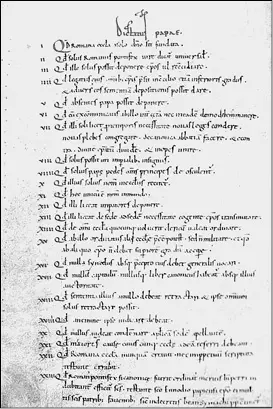 Dictatus papae.
I Qd Romana eccla a solo dno sit fundata.
II Qd solus Romanus pontifex iure dicat universal.
III Qd ille solus possit deponere epos vel reconciliare.
IIII Qd legatus eius omib; epis presit in concilio etia inferioris gradus.
& adversus eos sententia depositionis possit dare.
V Qd absentes papa possit deponere.
VI Qd cu excommunicatis ab illo int cetera nec in eade domo debem manere.
VII Qd illi soli licet p temporis necessitate novas leges condere.
novas plebes congregare. De canonica abbatia facere. & econ
tra. divite epatu dividere & inopes unire.
VIII Qd solus possit uti imperialib; insigniis.
VIIII Qd solius pape pedes oms principes deosculent.
X Qd illius solius nom in ecclis recitet.
XI Qd hoc unicu est nom in mundo.
XII Qd illi liceat imperatores deponere.
XIII Qd illi liceat de sede ad sede necessitate cogente epos transmutare.
XIIII Qd de omi eccla quocunq; voluerit clericu valeat ordinare.
XV Qd ab illo ordinatus alii eccle preesse potest. sed n militare. & qd
ab aliquo epo n debet superiore gradu accipe.
XVI Qd nulla synodus absq; precepto eius debet generalis vocari.
XVII Qd nullu capitulu nullusq; liber canonicus habeat absq; illius
auctoritate.
XVIII Qd sententia illius a nullo debeat retractari & ipse omium
solus retractare possit.
XVIIII Qd a nemine ipse iudicari debeat.
XX Qd nullus audeat condemnare aplica sede apellante.
XXI Qd maiores cause cuiuscunq; eccle ad ea referri debeant.
XXII Qd Romana eccla nunqua erravit nec imppetuu scriptura
testante errabit.
XXIII Qd Romanus pontifex si canonice fuerit ordinatus meritis b petri in
dubitanter efficit scs. testante sco Ennodio papiensi epo ei mul
tis scis patrib; faventib; sic in decretis